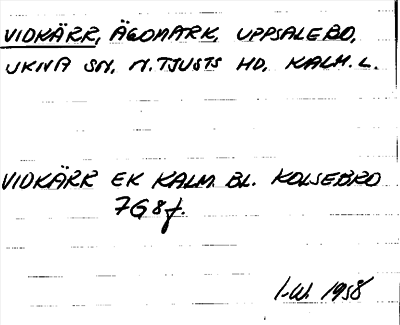 VIDKÄRR, ÄGOMARK, UPPSALEBO,
UKNA SN, N. TJUSTS HD, KALM. L.
VIDKÄRR EK KALM. BL. KOLSEBRO
7G8f.
1958